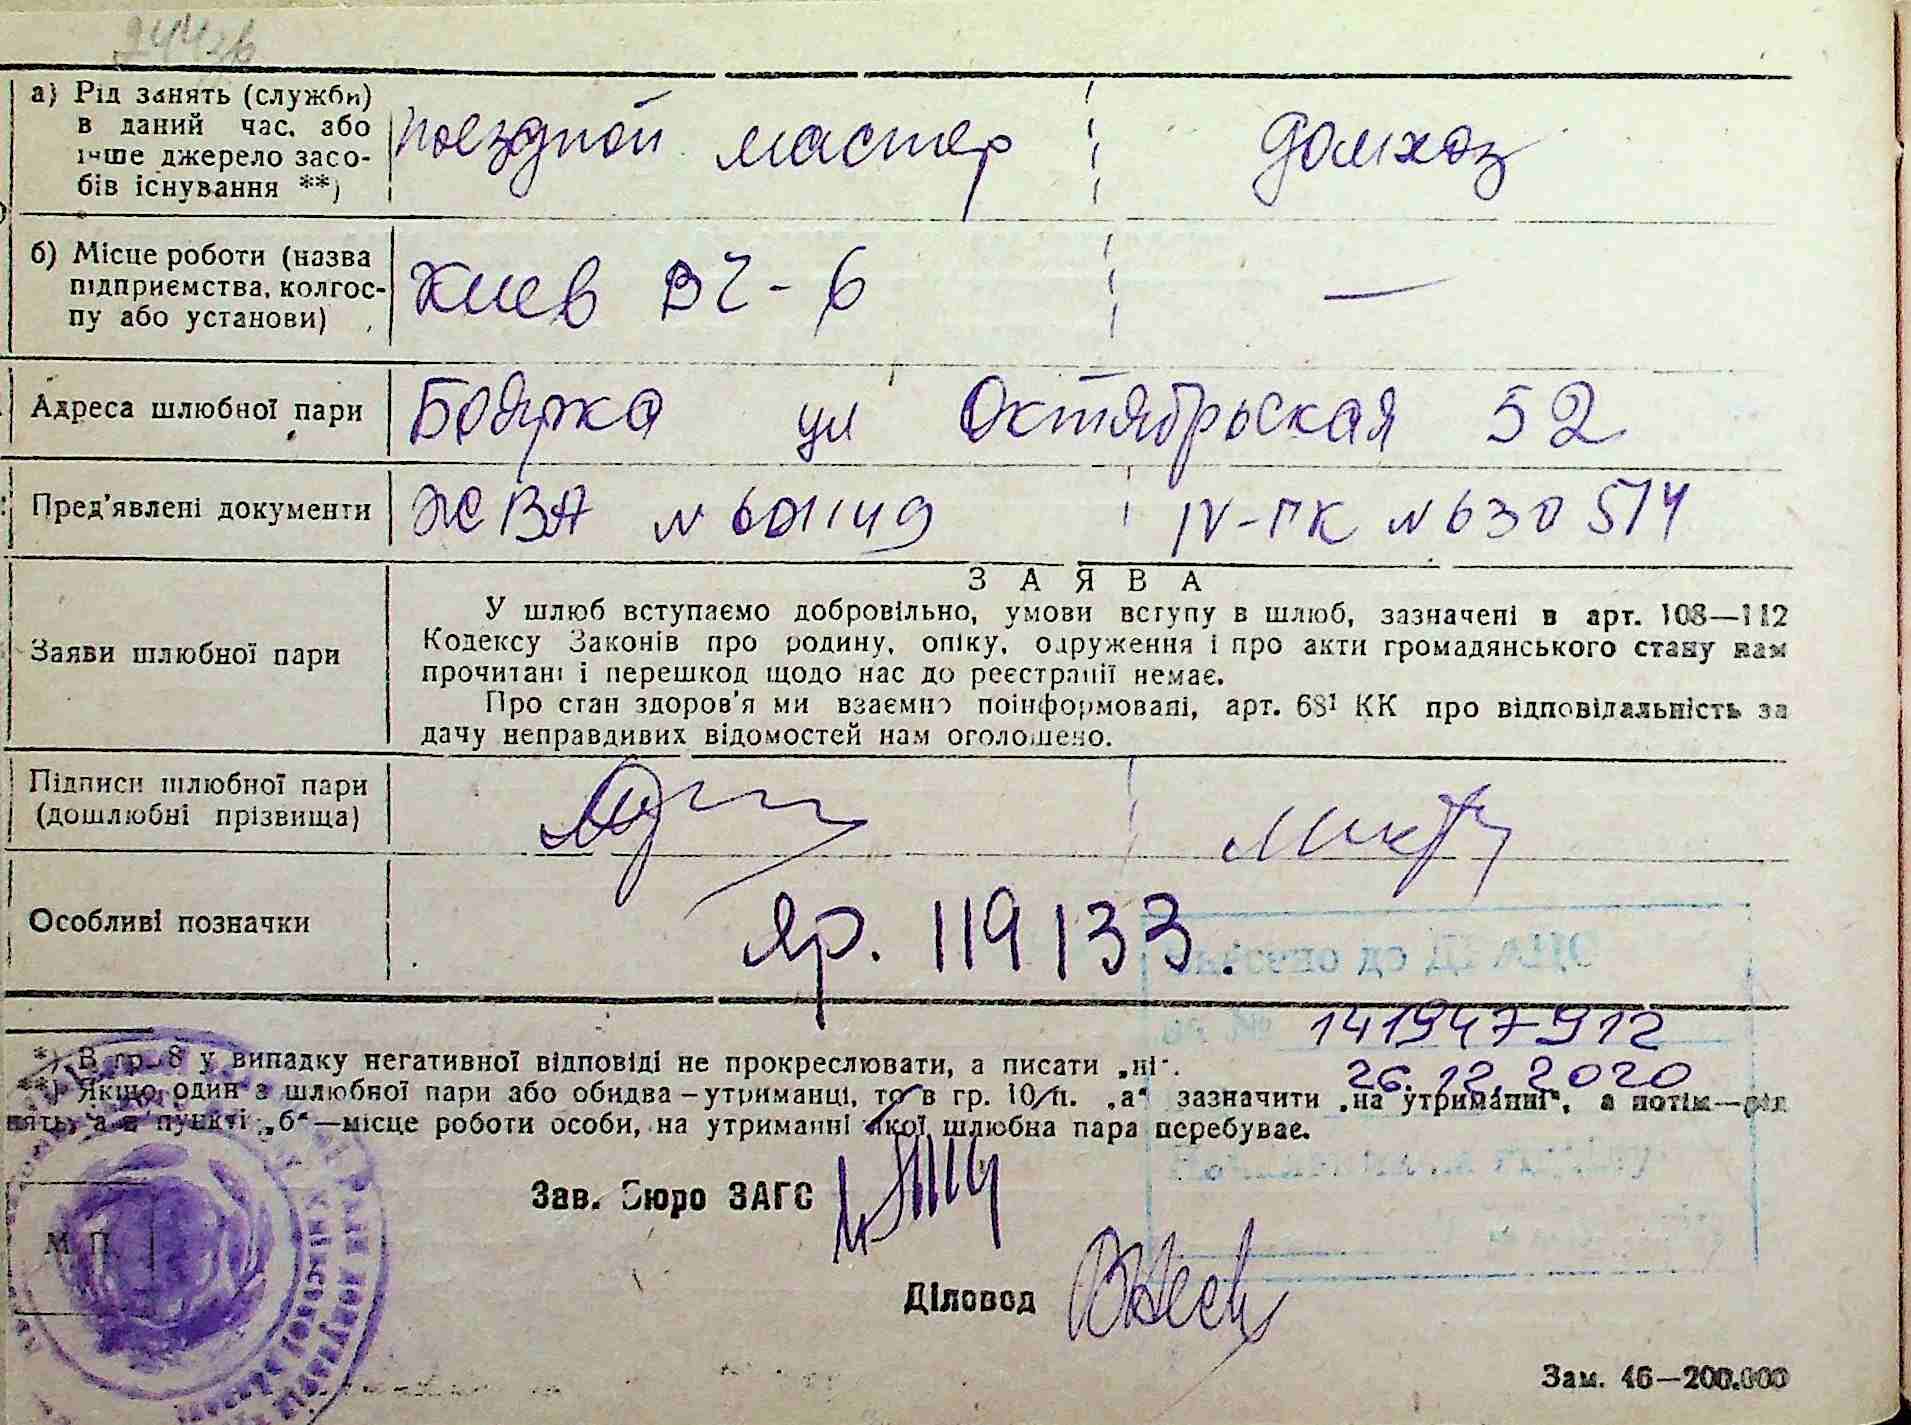 а) Рід занять (служби) в даний час. або інше джерело засобів існування **) поездной мастер домхоз
б) Місце роботи (назва підприємства, колгоспу або установи) Киев ВЧ-6 —
Адреса шлюбної пари Боярка ул Октябрьская 52
Пред'явлені документи ЖВА № 601149 IV-ПК № 630574
ЗАЯВА
Заяви шлюбної пари
У шлюб вступаємо добровільно, умови вступу в шлюб, зазначені в арт. 108—112
Кодексу Законів про родину, опіку, одруження і про акти громадянського стану нам
прочитані і перешкод щодо нас до реєстрації немає.
Про стан здоров'я ми взаємно поінформовані, арт. 68¹ КК про відповідальність за
дачу неправдивих відомостей нам оголошено.
Підписи шлюбної пари
(дошлюбні прізвища)
Особливі позначки яр. 119133.
Внесено до ДРАЦС
за № 141947912
26.12.2020
*) В гр. 8 у випадку негативної відповіді не прокреслювати, а писати „ні".
**) Якщо один з шлюбної пари або обидва – утриманці, то в гр. 10 п. „а" зазначити „на утриманні", а потім—рід
нять, а в пункті „б"—місце роботи особи, на утриманні якої шлюбна пара перебуває.
Зав. Бюро ЗАГС
М. П.
Діловод
Зам. 46—200.000